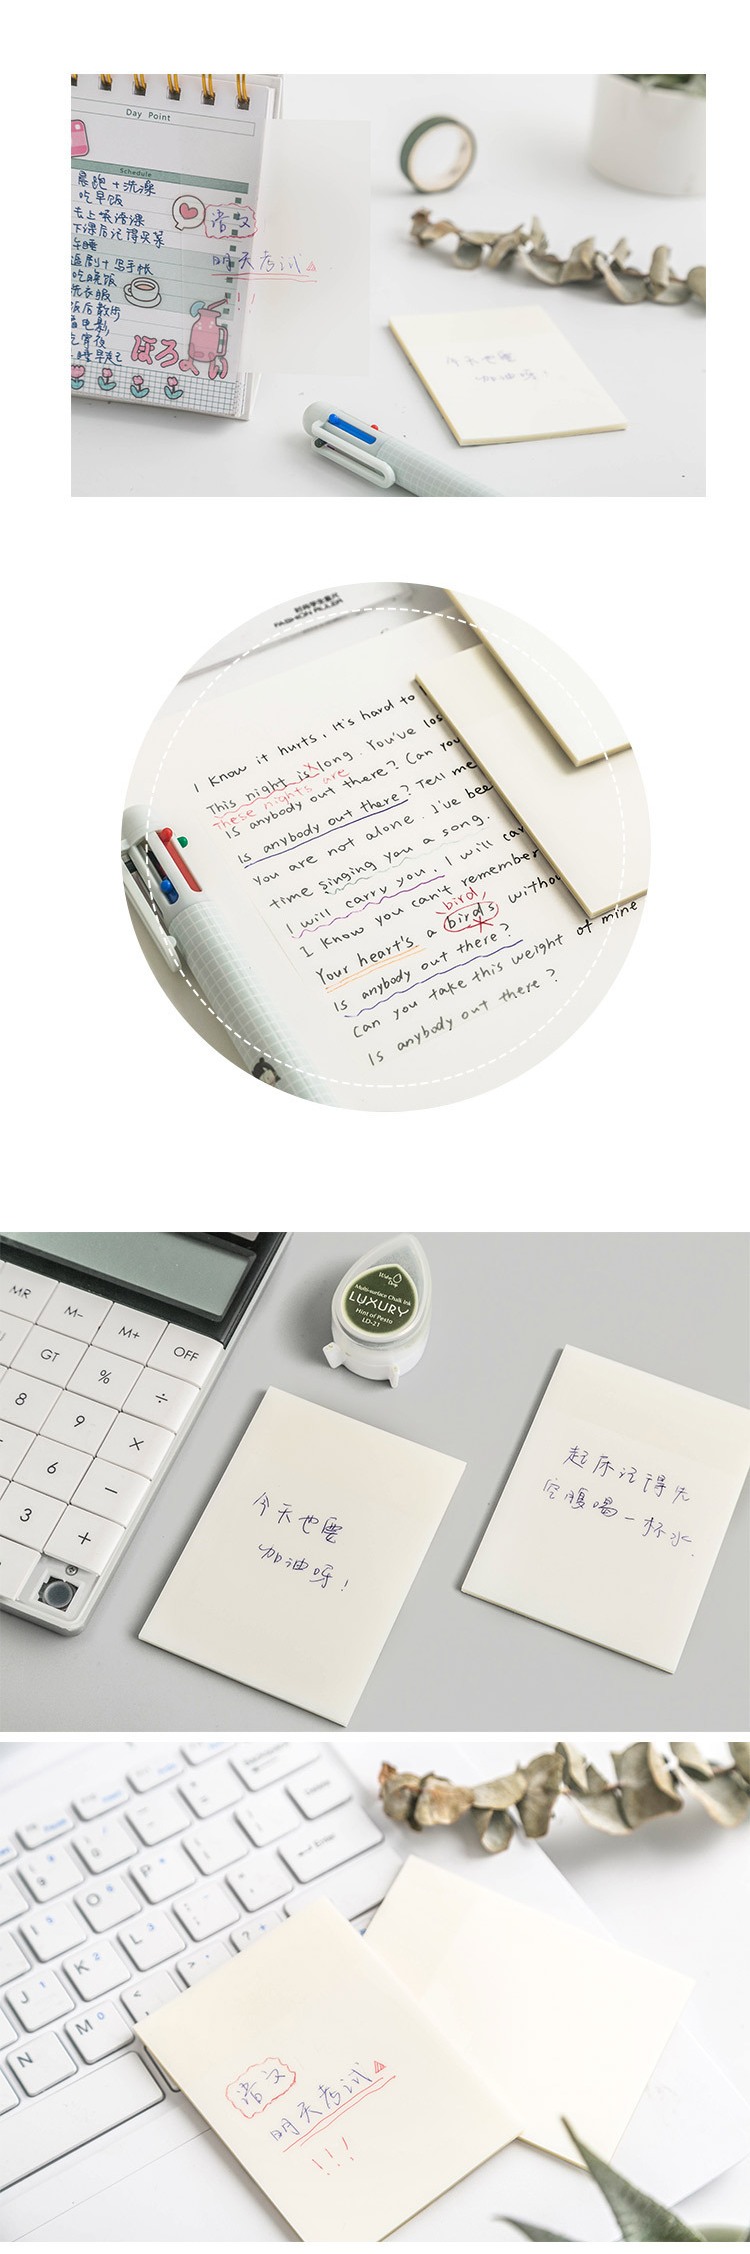 Day Point
Schedule
晨跑+洗澡
吃早饭
去上英语课
下课后记得买菜
午睡
追剧+写手帐
吃晚饭
洗衣服
饭后散步
看电影
吃宵夜
早起
语文
明天考试
!!
ほろよい
今天也要
加油呀!
时尚学生直尺
FASHION RULER
I know it hurts, It's hard to
This night is long. You've los
These nights are
Is anybody out there? Can you
Is anybody out there? Tell me
You are not alone. I've bee
time singing you a song.
I will carry you. I will car
I know you can't remember
bird
Your heart's a birds withou
Is anybody out there?
Can you take this weight of mine
Is anybody out there?
MR
M-
M+
OFF
GT
%
÷
8
9
×
6
−
3
+
Multi-surface Chalk Ink
LUXURY
Hint of Pesto
LD-21
今天也要
加油呀!
起床记得先
空腹喝一杯水.
Enter
I
O
P
J 1
K 2
L 3
N
M 0
语文
明天考试
!!!